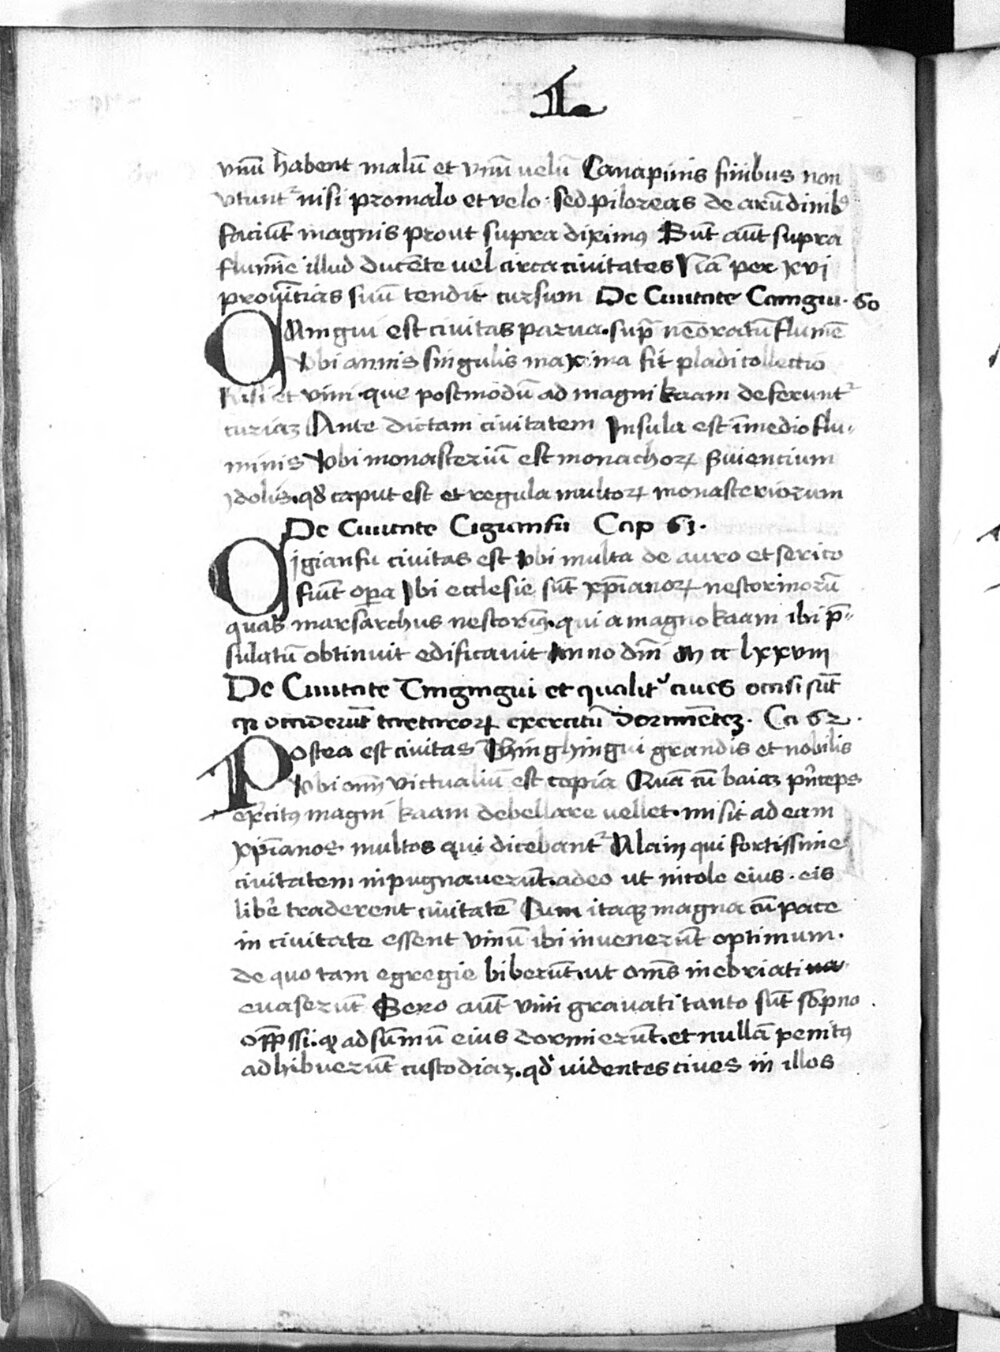 L
vnū habent malū et vnū uelū Canapinis finibus non
vtunt̉ nisi pro malo et velo · sed piloreas de arūdinibꝰ
faciūt magnis prout supra diximꝰ Sūt aūt supra
flumē illud ducēte vel circa ciuitates Nā per xvi
prouītias suū tendit cursum De Ciuitate Caingui · 60
CAingui est ciuitas parua · sup̄ neōratū flumē
Vbi annis singulis maxima fit pladi collectio
Risi et vini que postmodū ad magni kaam deferunt̉
curiaʒ Ante dictam ciuitatem Insula est ī medio flu-
minis Vbi monasteriū est monachoꝝ Suiencium
ydolis · qd̄ caput est et regula multoꝝ monasteriorum
De Ciuitate Cigianfu Cap 61 ·
Cigianfu ciuitas est Vbi multa de auro et serico
fiūt opa Ibi ecclesie sūt xp̄ianoꝝ nestorinorū
quas marsarchus nestorinꝰ · qui a magno kaam ibi p̄-
sulatū obtinuit edificauit Anno dn̄i M cc lxxviii
De Ciuitate Tingingui et qualit̉ ciues occisi sūt
qꝫ occiderūt tartaroꝝ exercitū dormiētēʒ · Ca 62 ·
Postea est ciuitas Thinghingui grandis et nobilis
Vbi om̄ victualiū est copia Qua cū baiaʒ pn̄ceps
exercitꝰ magni kaam debellare uellet · misit ad eam
xp̄ianos multos qui dicebant̉ Alain qui fortissime
ciuitatem inpugnauerūt · adeo ut incole eius · eis
libē traderent ciuitatē Cum itaqꝫ magna cū pace
in ciuitate essent vinū ibi inuenerūt optimum ·
de quo tam egregie biberūt · ut om̄s inebriati
euaserūt Sero aūt vini grauati tanto sūt sōpno
opp̄ssi · qꝫ ad sūmū eius dormierūt · et nullā penitꝰ
adhibuerūt custodiaʒ · qd̄ uidentes ciues in illos